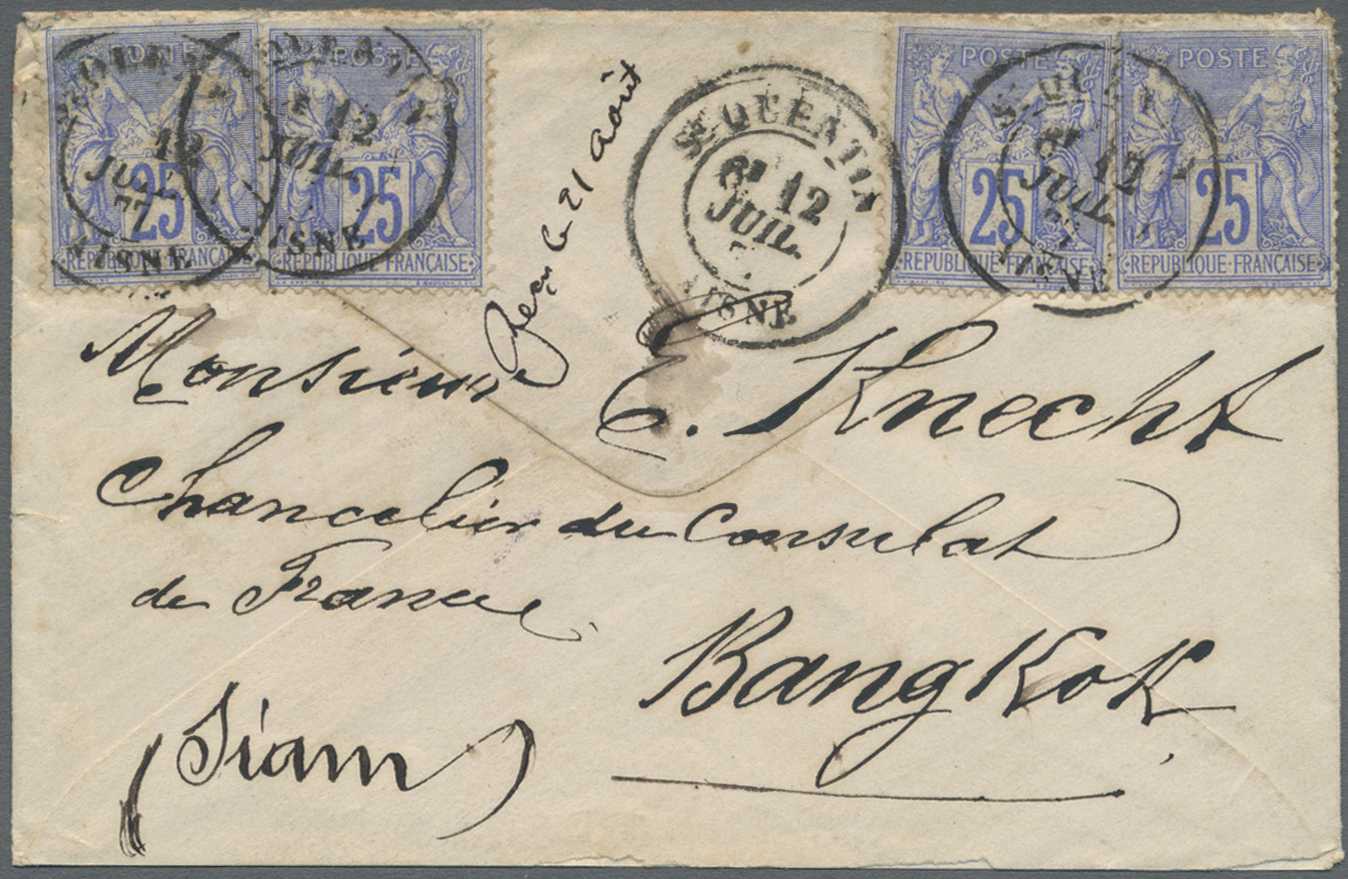 POSTE POSTE POSTE
25 25 25 25
REPUBLIQUE FRANÇAISE REPUBLIQUE FRANÇAISE REPUBLIQUE FRANÇAISE REPUBLIQUE FRANÇAISE
12
JUIL
77
AISNE
12
JUIL
AISNE
St QUENTIN
6E 12
JUIL
AISNE
St QUENTIN
6E 12
JUIL
AISNE
Reçu le 21 août
Monsieur E. Knecht
Chancelier du Consulat
de France
Bangkok
(Siam)